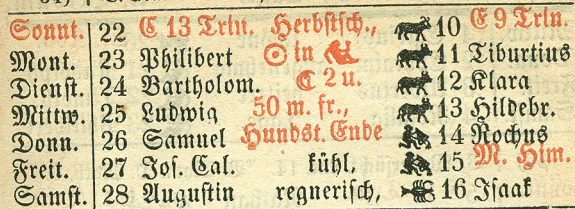 Sonnt. 22 C 13 Trin. Herbstsch., 10 E 9 Trin.
Mont. 23 Philibert ☉ in 11 Tiburtius
Dienst. 24 Bartholom. ☾ 2 u. 12 Klara
Mittw. 25 Ludwig 50 m. fr., 13 Hildebr.
Donn. 26 Samuel Hundst. Ende 14 Rochus
Freit. 27 Jos. Cal. kühl, 15 M. Him.
Samst. 28 Augustin regnerisch, 16 Isaak